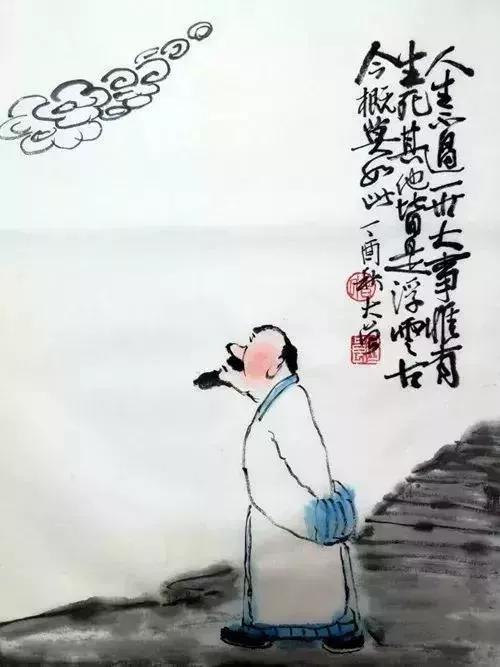 人生不過一世大事惟有
生死其他皆是浮雲古
今概莫如此丁酉秋大